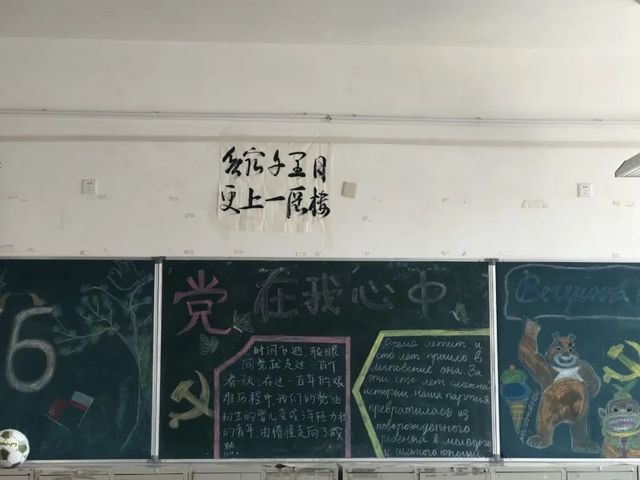 欲穷千里目
更上一层楼
党在我心中
6
时间飞逝,眨眼
间党就走过一百个
春秋,在这一百年的艰
难历程中,我们的党由
初生的婴儿变成了年轻力壮
的青年,由懵懂走向了成
熟.
Время летит и
сто лет прошло в
мгновение ока. За
эти сто лет сложной
истории наша партия
превратилась из
новорожденного
ребенка в
и сильного юношу